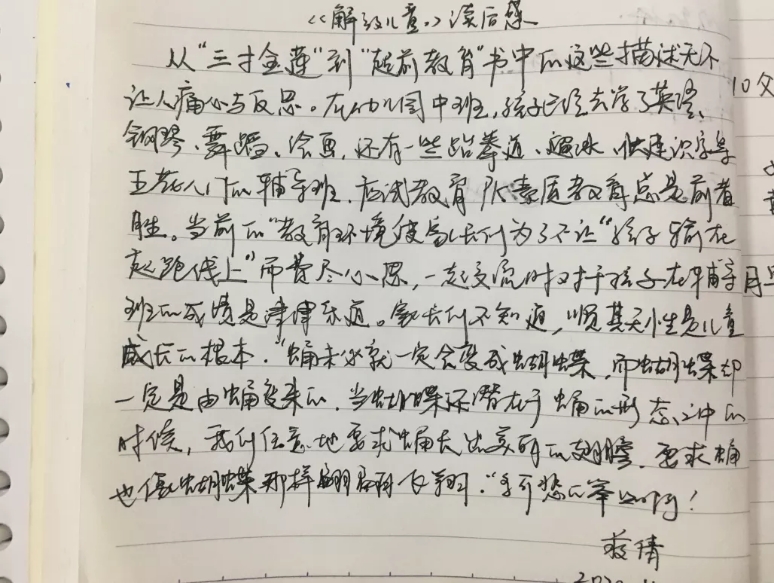 《解放儿童》读后感
从“三寸金莲”到“超前教育”书中的这些描述无不
让人痛心与反思。在幼儿园中班,孩子已经去学了英语、
钢琴、舞蹈、绘画,还有一些跆拳道、溜冰、快速识字等
五花八门的辅导班,应试教育PK素质教育总是前者
胜。当前的“教育环境使家长们为了不让“孩子输在
起跑线上”而费尽心思,一起交流时对于孩子在辅导
班的成绩是津津乐道。家长们不知道,顺其天性是儿童
成长的根本,“蛹未必就一定会变成蝴蝶,而蝴蝶却
一定是由蛹变来的,当蝴蝶还潜在于蛹的形态之中的
时候,我们任意地要求蛹长出美丽的翅膀,要求蛹
也像蝴蝶那样翩翩飞翔,“多可悲的举动啊!
倩
10